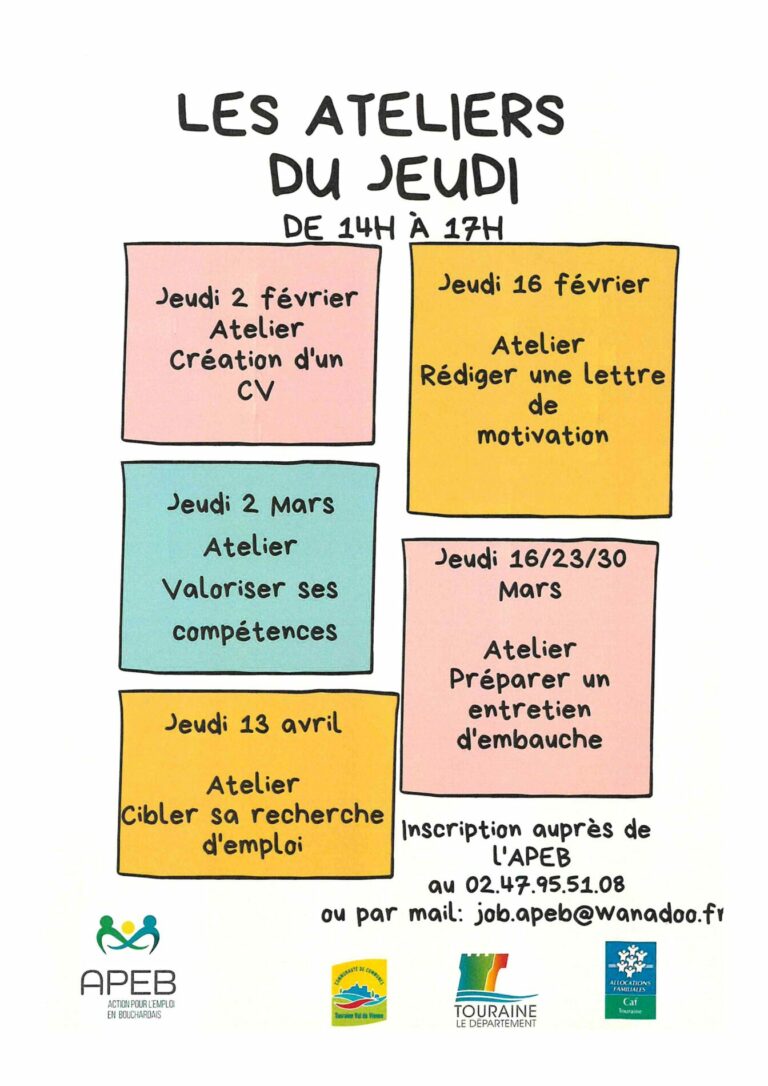 LES ATELIERS
DU JEUDI
DE 14H À 17H
Jeudi 2 février
Atelier
Création d'un
CV
Jeudi 16 février
Atelier
Rédiger une lettre
de
motivation
Jeudi 2 Mars
Atelier
Valoriser ses
compétences
Jeudi 16/23/30
Mars
Atelier
Préparer un
entretien
d'embauche
Jeudi 13 avril
Atelier
Cibler sa recherche
d'emploi
Inscription auprès de
l'APEB
au 02.47.95.51.08
ou par mail: job.apeb@wanadoo.fr
APEB
ACTION POUR L'EMPLOI
EN BOUCHARDAIS
COMMUNAUTÉ DE COMMUNES
Touraine Val de Vienne
TOURAINE
LE DÉPARTEMENT
ALLOCATIONS
FAMILIALES
Caf
Touraine